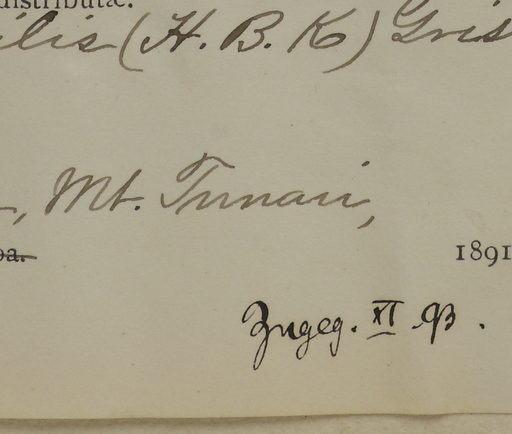 distributæ.
ilis (H. B. K) Gris
, Mt. Tunari,
ba. 1891
Zugeg. XI